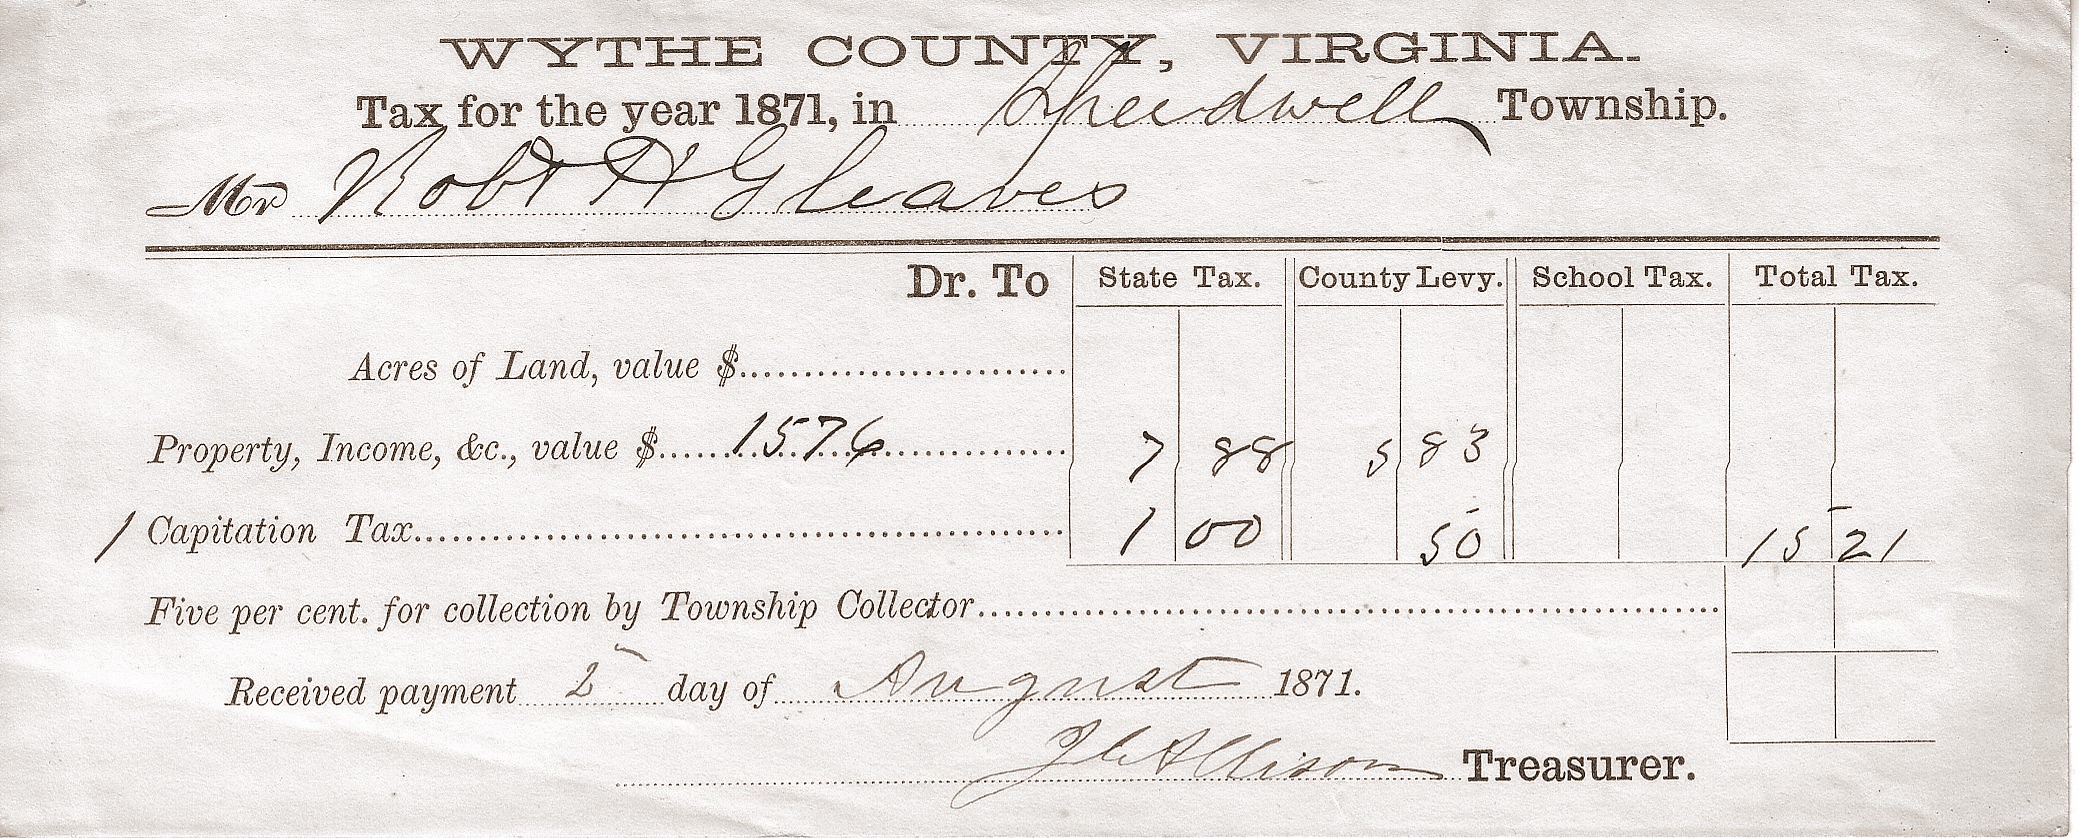 WYTHE COUNTY, VIRGINIA.
Tax for the year 1871, in Speedwell Township.
Mr Robt H Gleaves
Dr. To State Tax. County Levy. School Tax. Total Tax.
Acres of Land, value $
Property, Income, &c., value $ 1576 7 88 5 83
1 Capitation Tax 1 00 50 15 21
Five per cent. for collection by Township Collector
Received payment 2 day of August 1871.
J C Allison Treasurer.